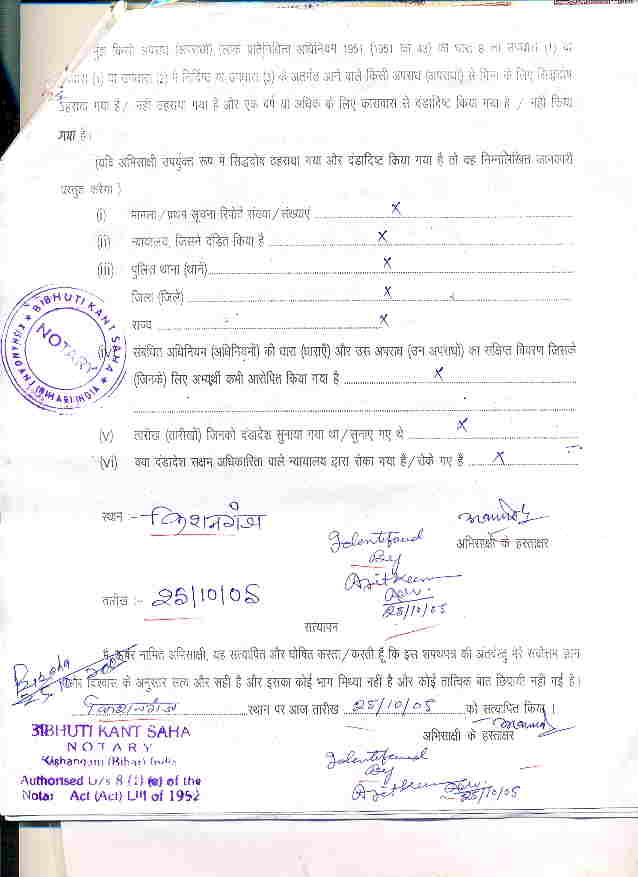 किसी अपराध (अपराधों) (लोक प्रतिनिधित्व अधिनियम 1951 (1951 का 43) की धारा 8 की उपधारा (1) या
(1) या उपधारा (2) में निर्दिष्ट या उपधारा (3) के अंतर्गत आने वाले किसी अपराध (अपराधों) से भिन्न के लिए सिद्धदोष
ठहराया गया है / नहीं ठहराया गया है और एक वर्ष या अधिक के लिए कारावास से दंडादिष्ट किया गया है / नहीं किया
गया है।
(यदि अभिसाक्षी उपर्युक्त रूप में सिद्धदोष ठहराया गया और दंडादिष्ट किया गया है तो वह निम्नलिखित जानकारी
प्रस्तुत करेगा )
(i) मामला/प्रथम सूचना रिपोर्ट संख्या/संख्याएं x
(ii) न्यायालय, जिसने दंडित किया है x
(iii) पुलिस थाना (थाने) x
जिला (जिले) x
राज्य x
संबंधित अधिनियम (अधिनियमों) की धारा (धाराएँ) और उस अपराध (उन अपराधों) का संक्षिप्त विवरण जिसके
(जिनके) लिए अभ्यर्थी कभी आरोपित किया गया है x
(v) तारीख (तारीखों) जिनको दंडादेश सुनाया गया था/सुनाए गए थे x
(vi) क्या दंडादेश सक्षम अधिकारिता वाले न्यायालय द्वारा रोका गया है/रोके गए हैं x
BIBHUTI KANT SAHA
NOTARY
KISHANGANJ (BIHAR) INDIA
स्थान :- किशनगंज
अभिसाक्षी के हस्ताक्षर
Identified
By
तारीख :- 25/10/05
25/10/05
सत्यापन
मैं, ऊपर नामित अभिसाक्षी, यह सत्यापित और घोषित करता/करती हूँ कि इस शपथपत्र की अंतर्वस्तु मेरे सर्वोत्तम ज्ञान
और विश्वास के अनुसार सत्य और सही है और इसका कोई भाग मिथ्या नहीं है और कोई तात्विक बात छिपायी नहीं गई है।
किशनगंज स्थान पर आज तारीख 25/10/05 को सत्यापित किया ।
अभिसाक्षी के हस्ताक्षर
BIBHUTI KANT SAHA
NOTARY
Kishanganj (Bihar) India
Authorised U/s 8 (1) (e) of the
Act (Act) LIII of 1952
Identified
By
25/10/05